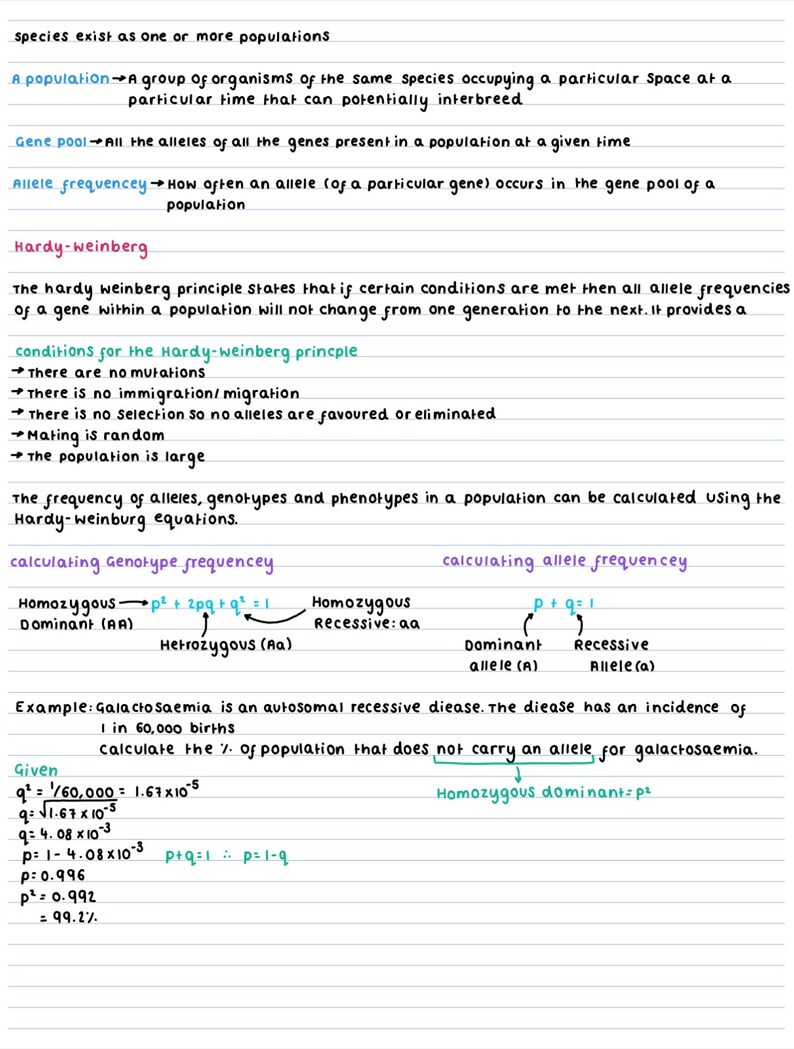 species exist as one or more populations
A population → A group of organisms of the same species occupying a particular space at a
particular time that can potentially interbreed
Gene pool → All the alleles of all the genes present in a population at a given time
Allele frequencey → How often an allele (of a particular gene) occurs in the gene pool of a
population
Hardy-weinberg
The hardy weinberg principle states that if certain conditions are met then all allele frequencies
of a gene within a population will not change from one generation to the next. It provides a
conditions for the Hardy-weinberg princple
→ There are no mutations
→ There is no immigration/migration
→ There is no selection so no alleles are favoured or eliminated
→ Mating is random
→ The population is large
The frequency of alleles, genotypes and phenotypes in a population can be calculated using the
Hardy-weinburg equations.
calculating Genotype frequencey
Homozygous → p² + 2pq + q² = 1 Homozygous
Dominant (AA) Recessive: aa
Hetrozygous (Aa)
calculating allele frequencey
p + q = 1
Dominant Recessive
allele (A) Allele (a)
Example: Galactosaemia is an autosomal recessive diease. The diease has an incidence of
1 in 60,000 births
calculate the % of population that does not carry an allele for galactosaemia.
Homozygous dominant = p²
Given
q² = 1/60,000 = 1.67 x 10⁻⁵
q = √1.67 x 10⁻⁵
q = 4.08 x 10⁻³
p = 1 - 4.08 x 10⁻³ p+q=1 ∴ p=1-q
p = 0.996
p² = 0.992
= 99.2%